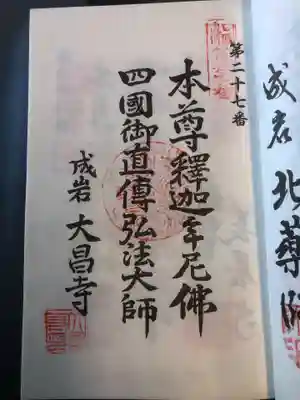 第二十七番
本尊釋迦牟尼佛
四國御直傳弘法大師
成岩 大昌寺
成岩 北